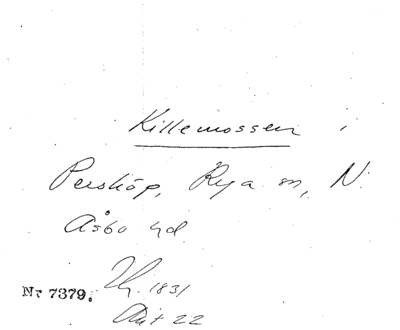 Killemossen i
Perstorp, Rya sn, N.
Åsbo hd.
Nr 7379. 1831
Akt 22